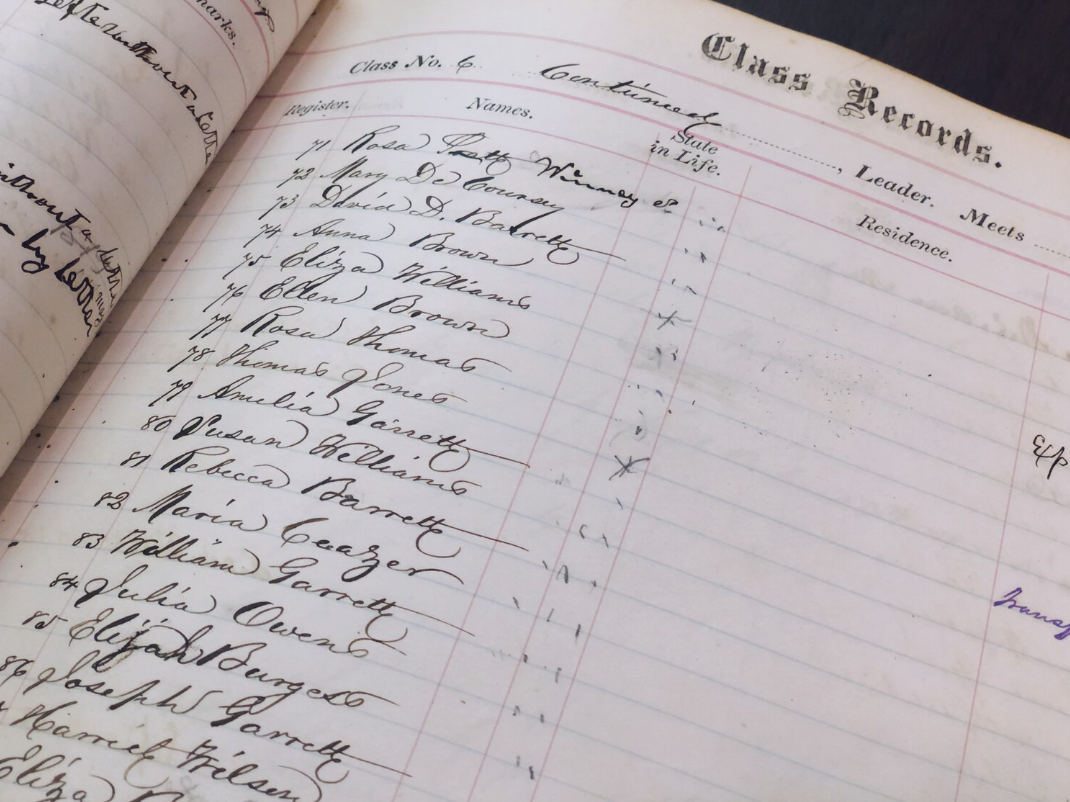 marks.
by letter
Class Records.
Class No. 6 Continued, Leader. Meets
Register. Names. State in Life. Residence.
71 Rosa Winney
72 Mary De Coursey
73 David D. Barrett
74 Anna Brown
75 Eliza Williams
76 Ellen Brown
77 Rosa Thomas
78 Thomas Jones
79 Amelia Garrett
80 Susan Williams
81 Rebecca Barrett
82 Maria Ceazer
83 William Garrett
84 Julia Owens
85 Elijah Burgess
86 Joseph Garrett
Harriet Wilson
Eliza
Exp
Transf